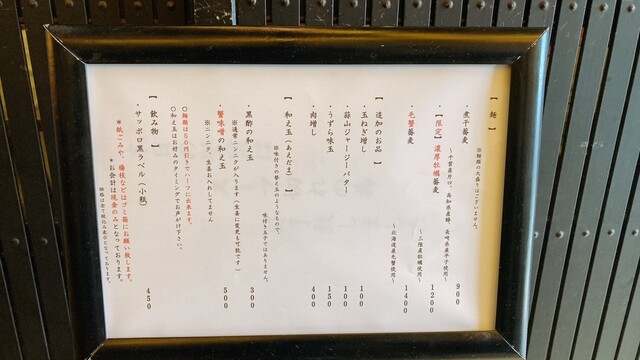 【 麺 】
※麺類の大盛りはございません。
・煮干蕎麦 900
～千葉産片口、高知県産鯵、長崎県産平子使用～
・【限定】濃厚牡蠣蕎麦 1200
～三陸産牡蠣使用～
・毛蟹蕎麦 1400
～北海道産毛蟹使用～
【 追加のお品 】
・玉ねぎ増し 100
・蒜山ジャージーバター 100
・うずら味玉 150
・肉増し 400
【 和え玉（あえだま） 】
※味付きの替え玉のようなもので、
味付き玉子ではありません。
・黒酢の和え玉 300
※通常ニンニクが入ります（生姜に変更も可能です）
・蟹味噌の和え玉 500
※ニンニク、生姜お入れしてません
○麺類は50円引きでハーフに出来ます。
○和え玉はお好みのタイミングでお声がけ下さい。
【 飲み物 】
・サッポロ黒ラベル（小瓶） 450
*紙ごみや、楊枝などはゴミ箱にお願い致します。
*お会計は現金のみとなっております。
価格は全て税込み表示となっております。